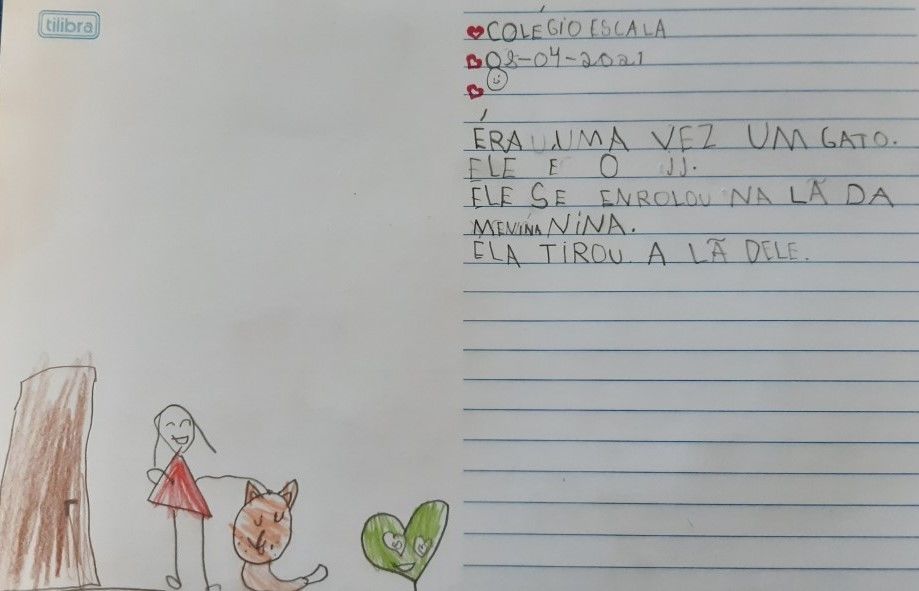 tilibra
COLEGIO ESCALA
08-04-2021
ERA UMA VEZ UM GATO.
ELE E O JJ.
ELE SE ENROLOU NA LÃ DA
MENINA NINA.
ELA TIROU A LÃ DELE.